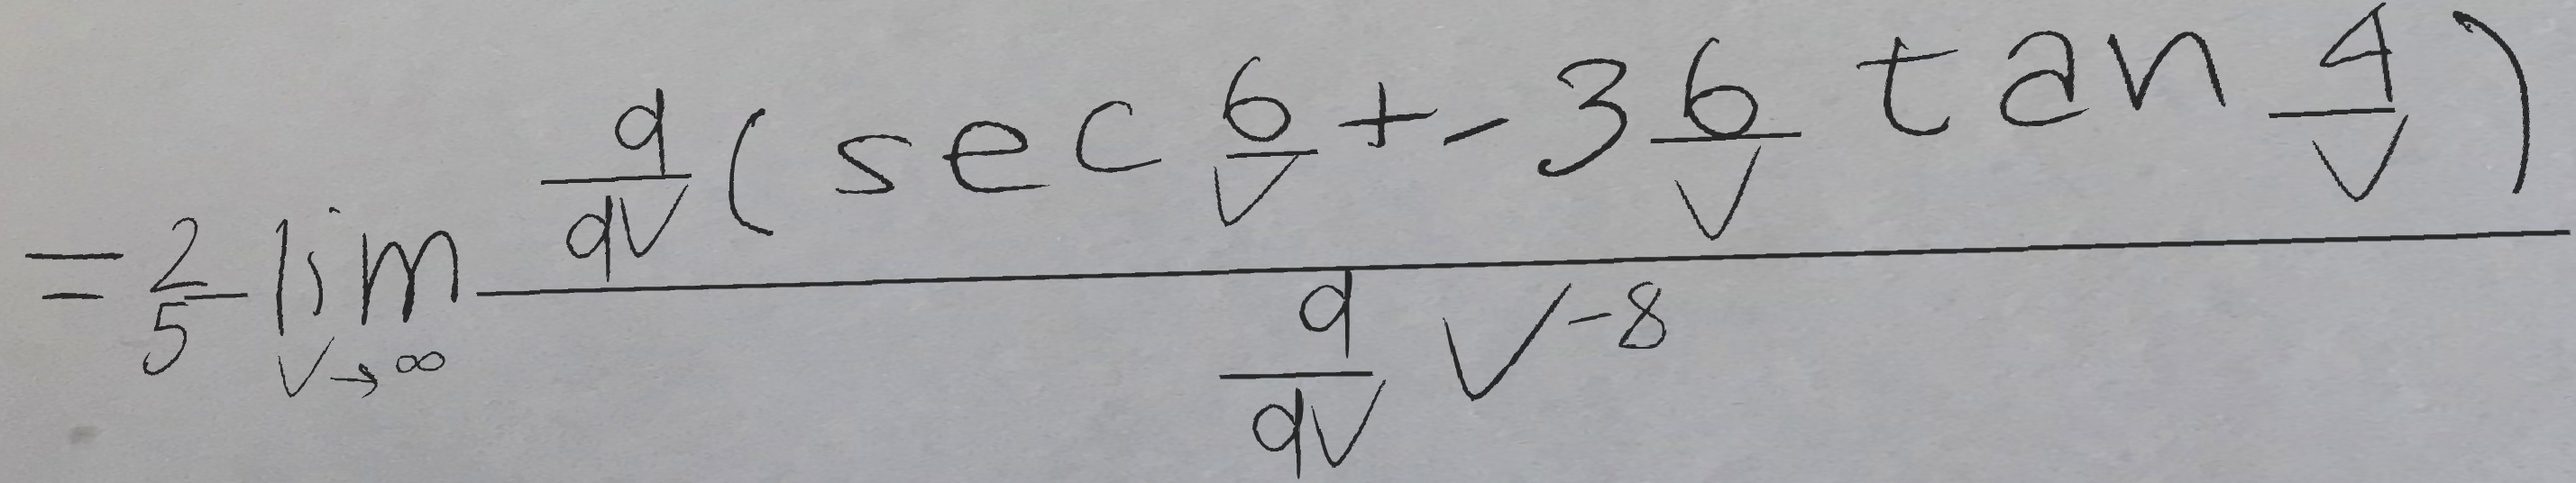 = \frac{2}{5} \lim_{v \to \infty} \frac{\frac{d}{dv}(\sec \frac{6}{v} + -3 \frac{6}{v} \tan \frac{4}{v})}{\frac{d}{dv} v^{-8}}